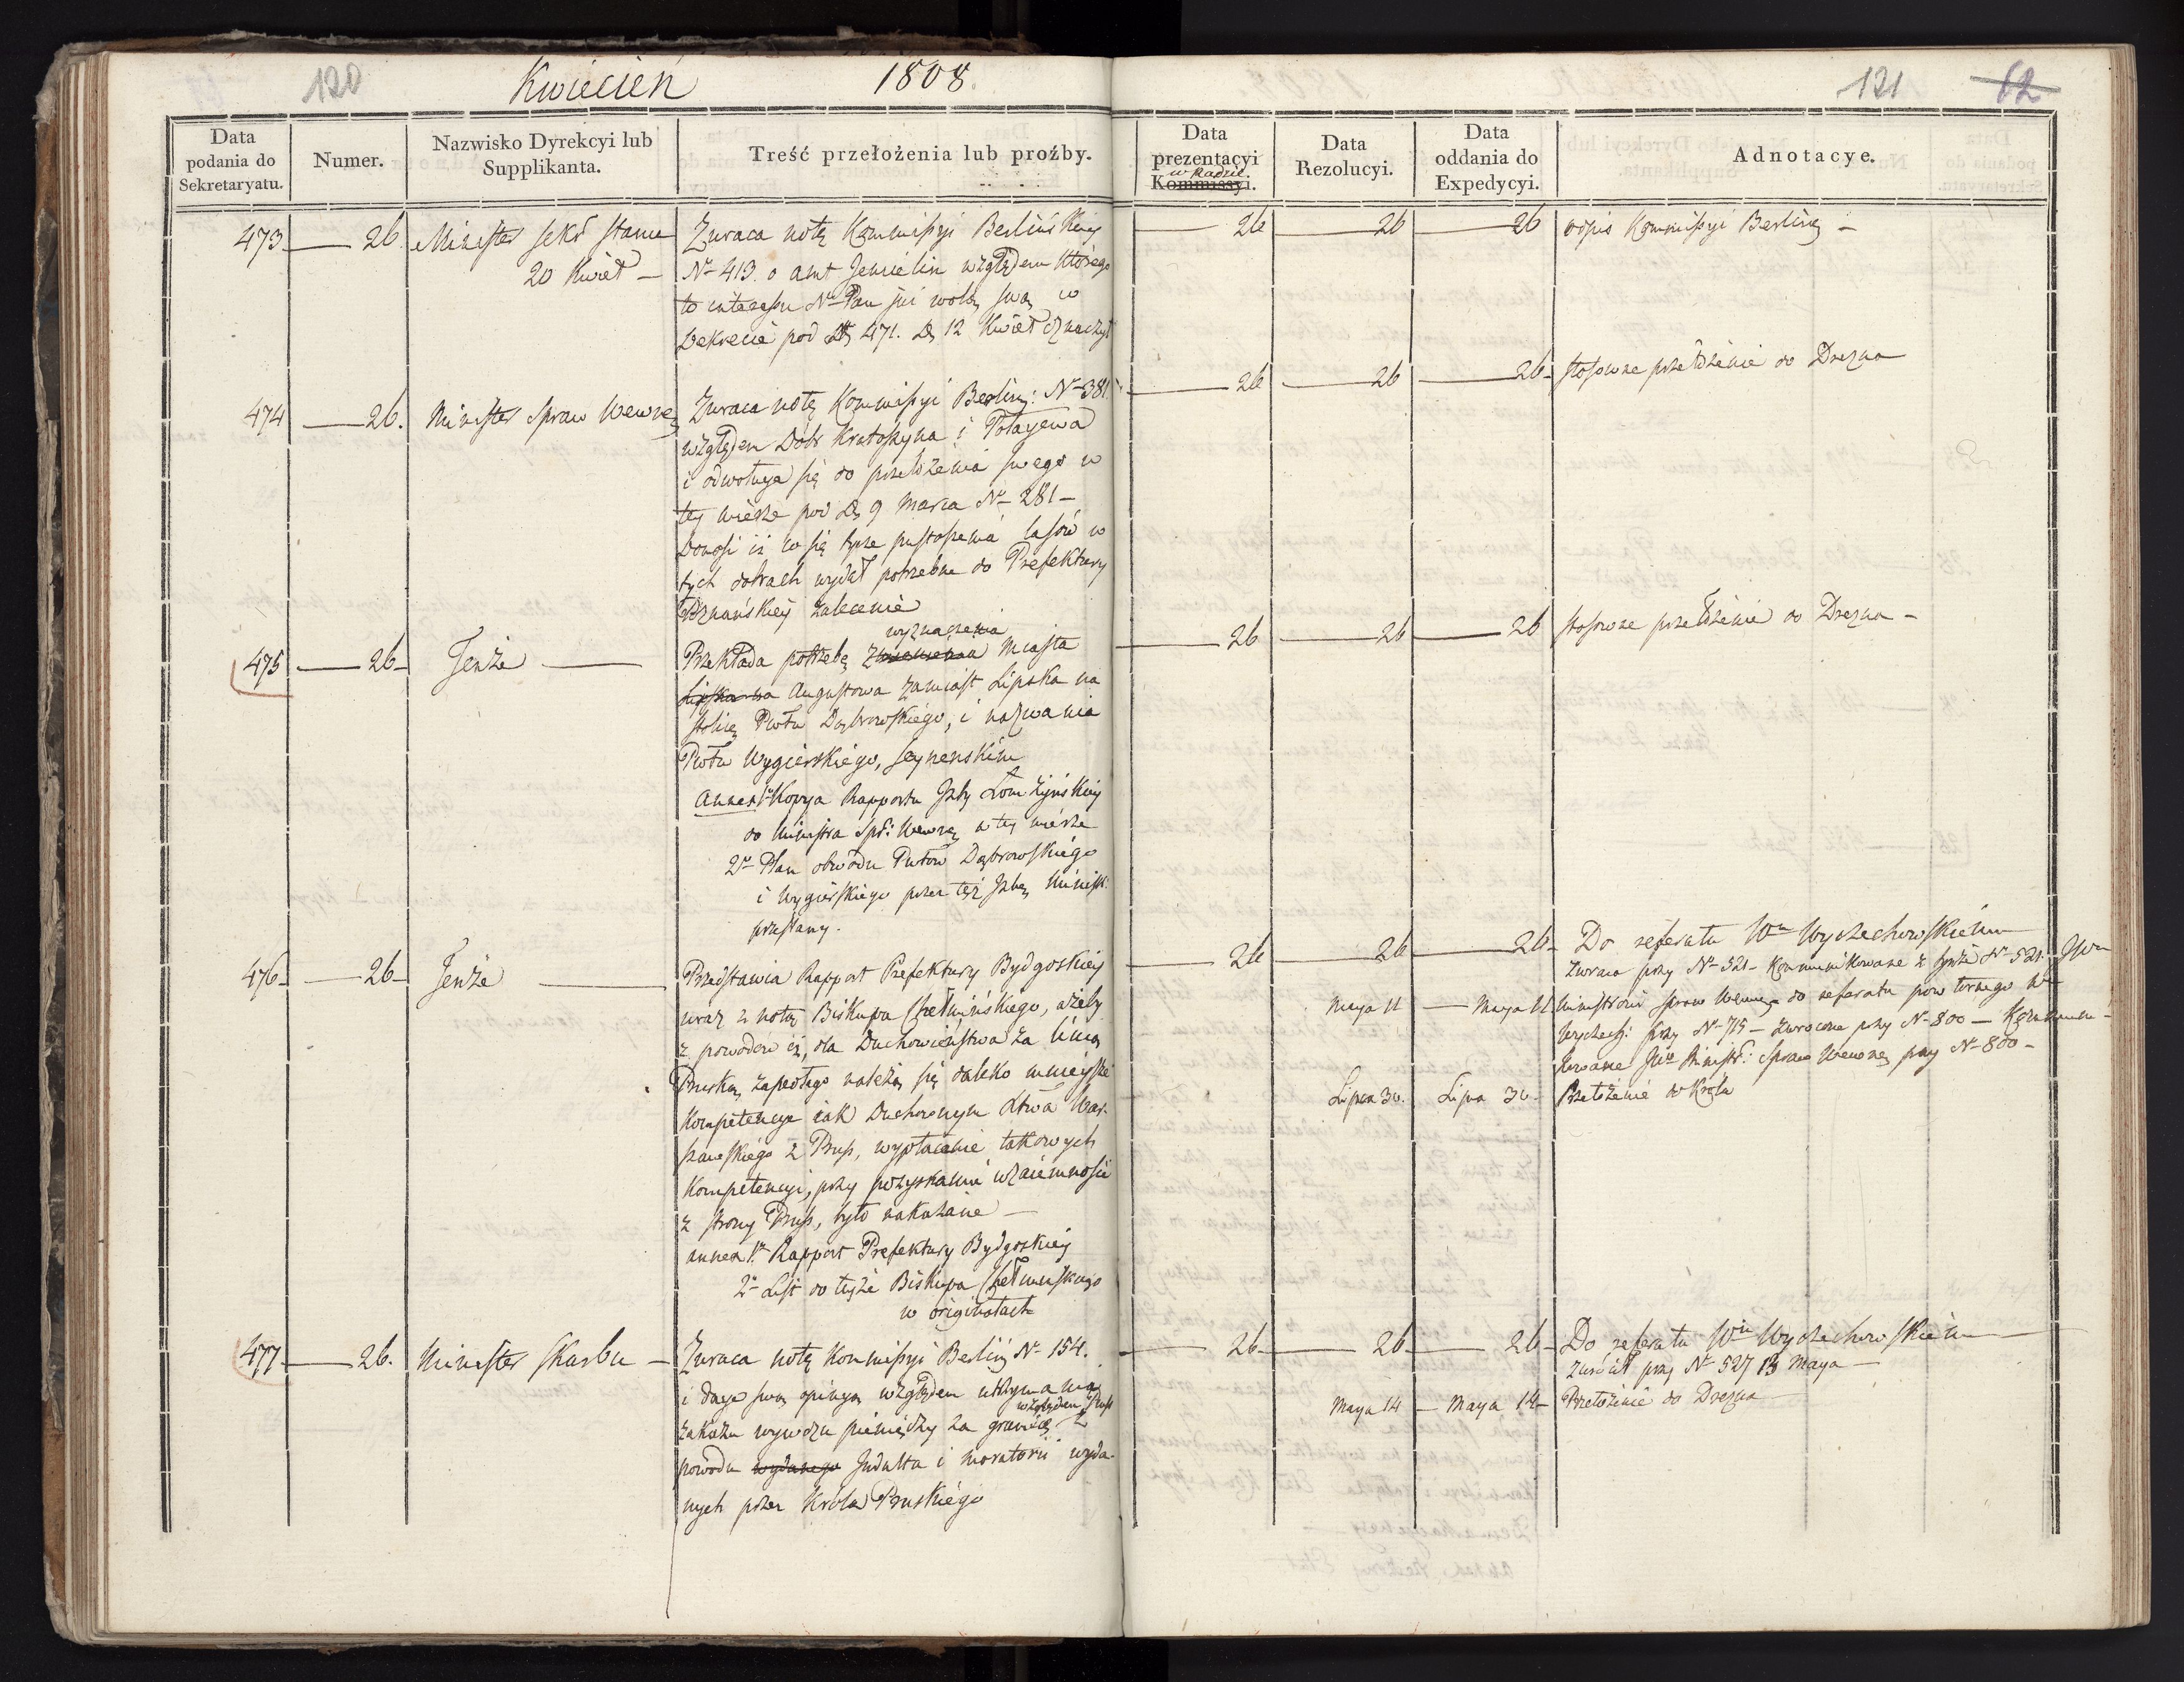 120 Kwiecień 1808.
121 62
Data podania do Sekretaryatu.
Numer.
Nazwisko Dyrekcyi lub Supplikanta.
Treść przełożenia lub proźby.
Data prezentacyi w Radzie. Kommissyi.
Data Rezolucyi.
Data oddania do Expedycyi.
Adnotacye.
473 — 26. Minister Sekr Stanu
20 Kwiet —
Zwraca notę Kommissyi Berlińskiey
N° 413. o amt względem którego
to interessu N. Pan już wolą swą w
Dekrecie pod N 471. D. 12 Kwiet oznaczył
— 26 — 26 — 26 odpis Kommissyi Berlins —
474 — 26. Minister Spraw Wewnę
Zwraca notę Kommissyi Berlins: N° 381.
względem Dóbr Krotoszyna i
i odwołuje się do przełożenia swego w
tey mierze pod D. 9 Marca N° 281 —
Donosi iż co się tycze pustoszenia lasów w
tych dobrach wydał potrzebne do Prefektury
Poznańskiey zalecenie
— 26 — 26 — 26 — stosowne przełożenie do Drezna
475 — 26 — Tenże —
wyznaczenia
Przekłada potrzebę Miasta
Lipska na Augustowa zamiast Lipska na
stolicę Powtu Dąbrowskiego, i nazwania
Powtu Wygierskiego, Seynenskim
Annex 1° Kopya Rapportu Izby Łomżyńskiey
do Ministra Spr: Wewnę w tey mierze
2° Plan obwodu Powtow Dąbrowskiego
i Wygierskiego przez też Izbę Minist:
przysłany.
— 26 — 26 — 26 stosowne przełożenie do Drezna —
476 — 26 — Tenże —
Przedstawia Rapport Prefektury Bydgoskiey
wraz z notą Biskupa Chełmińskiego, ażeby
z powodow iż, dla Duchowieństwa za linią
Pruską zapadłego należą się daleko mnieysze
Kompetencye iak Duchownym Xtwa War-
szawskiego z Prus, wypłacanie takowych
Kompetencyi, przy pozyskaniu wzaiemności
z strony Prus, było nakazane —
annex 1° Rapport Prefektury Bydgoskiey
2° List do teyże Biskupa Chełminskiego
w originałach
— 26 — 26 — 26 — Do referatu Wu Wyczechowskiemu
Zwraca przy N° 521 — Kommunikowane z tymże N° 521. JWu
Maya 11 — Maya 11 Ministrowi Spraw Wewnę do referatu powtornego Wu
Wyczech: przy N° 715 — zwrocone przy N° 800 — Kommuni-
kowane JWu Ministr: Spraw Wewnę przy N° 800 —
Lipca 30. Lipca 30. Przełożenie do Króla
477 — 26. Minister Skarbu —
Zwraca notę Kommissyi Berlin N° 154.
i daje swą opinią względem utrzymania
względem Prus
zakazu wywozu pieniędzy za granicę z
powodu wydanego Indultu i moratorii wyda-
nych przez Króla Pruskiego
— 26 — 26 — 26 — Do referatu Wu Wyczechowskiemu —
Zwrócił przy N° 527 13 Maya —
Maya 14 — Maya 14 — Przełożenie do Drezna